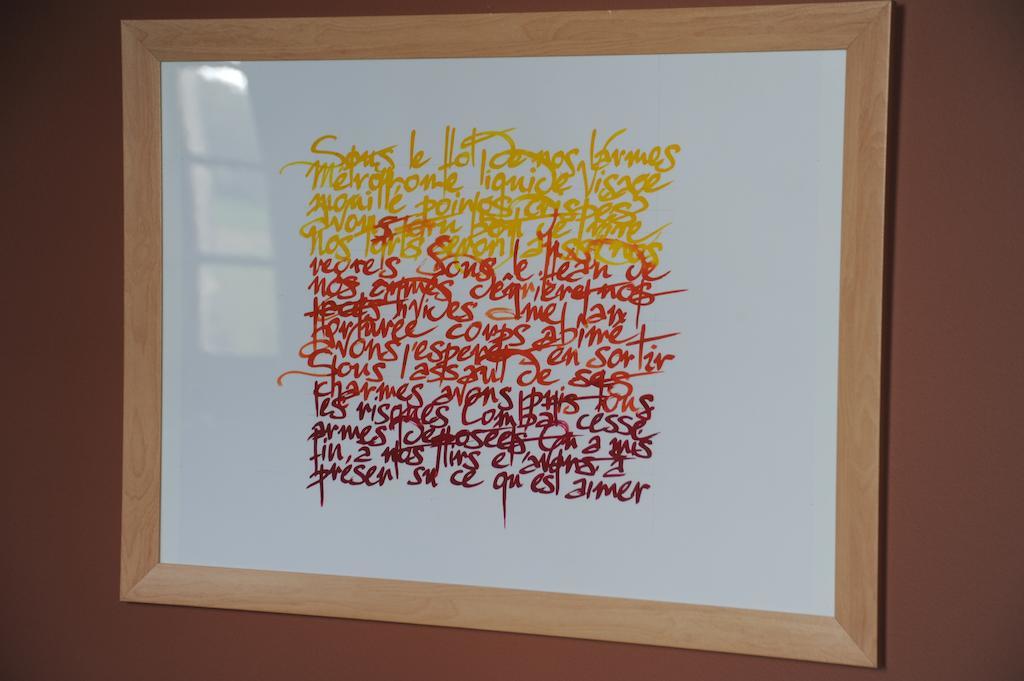 Sous le flot de nos larmes
métrophonie liquide Visage
mouillé poings crispés
avons tenu bon de croire
nos torts seront assortis
regrets Sous le fléau de
nos armes derrière nos
rides âme
torturée corps abimé
avons espéré en sortir
Sous l'assaut de ses
charmes avons pris tous
les risques Combat cessé
armes déposées On a mis
fin, à nos tirs et avons à
présent su ce qu'est aimer